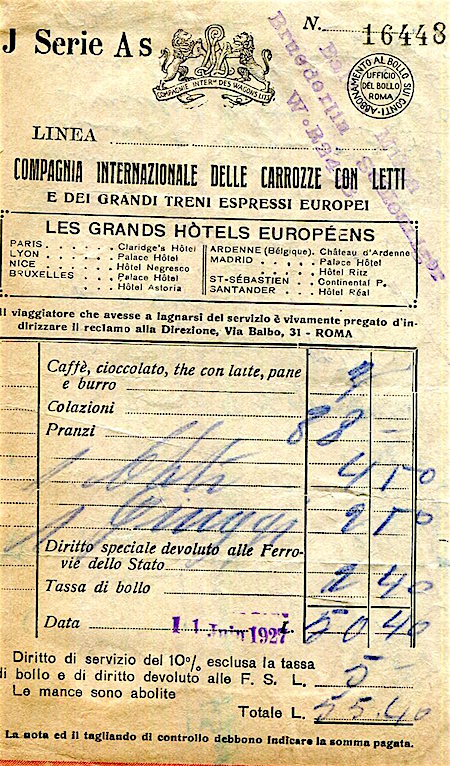 J Serie As
N. 16448
COMPAGNIE INTERN.le DES WAGONS LITS
ABBONAMENTO AL BOLLO SUI CONTI
UFFICIO
DEL BOLLO
ROMA
LINEA
COMPAGNIA INTERNAZIONALE DELLE CARROZZE CON LETTI
E DEI GRANDI TRENI ESPRESSI EUROPEI
LES GRANDS HÒTELS EUROPÉENS
PARIS . . . . . Claridge's Hôtel
LYON . . . . . Palace Hôtel
NICE . . . . . Hôtel Negresco
BRUXELLES . . . . Palace Hôtel
Hôtel Astoria
ARDENNE (Bélgique). Château d'Ardenne
MADRID . . . . Palace Hôtel
Hôtel Ritz
ST-SÉBASTIEN . . Continental P.
SANTANDER . . . Hôtel Réal
Il viaggiatore che avesse a lagnarsi del servizio è vivamente pregato d'in-
dirizzare il reclamo alla Direzione, Via Balbo, 31 - ROMA
Caffè, cioccolato, the con latte, pane
e burro
Colazioni
Pranzi 88 -
1 4 50
1 1 50
Diritto speciale devoluto alle Ferro-
vie dello Stato
Tassa di bollo 2 40
Data 11 Juin 1927 50 40
Diritto di servizio del 10% esclusa la tassa
di bollo e di diritto devoluto alle F. S. L. 5 -
Le mance sono abolite
Totale L. 55.40
La nota ed il tagliando di controllo debbono indicare la somma pagata.